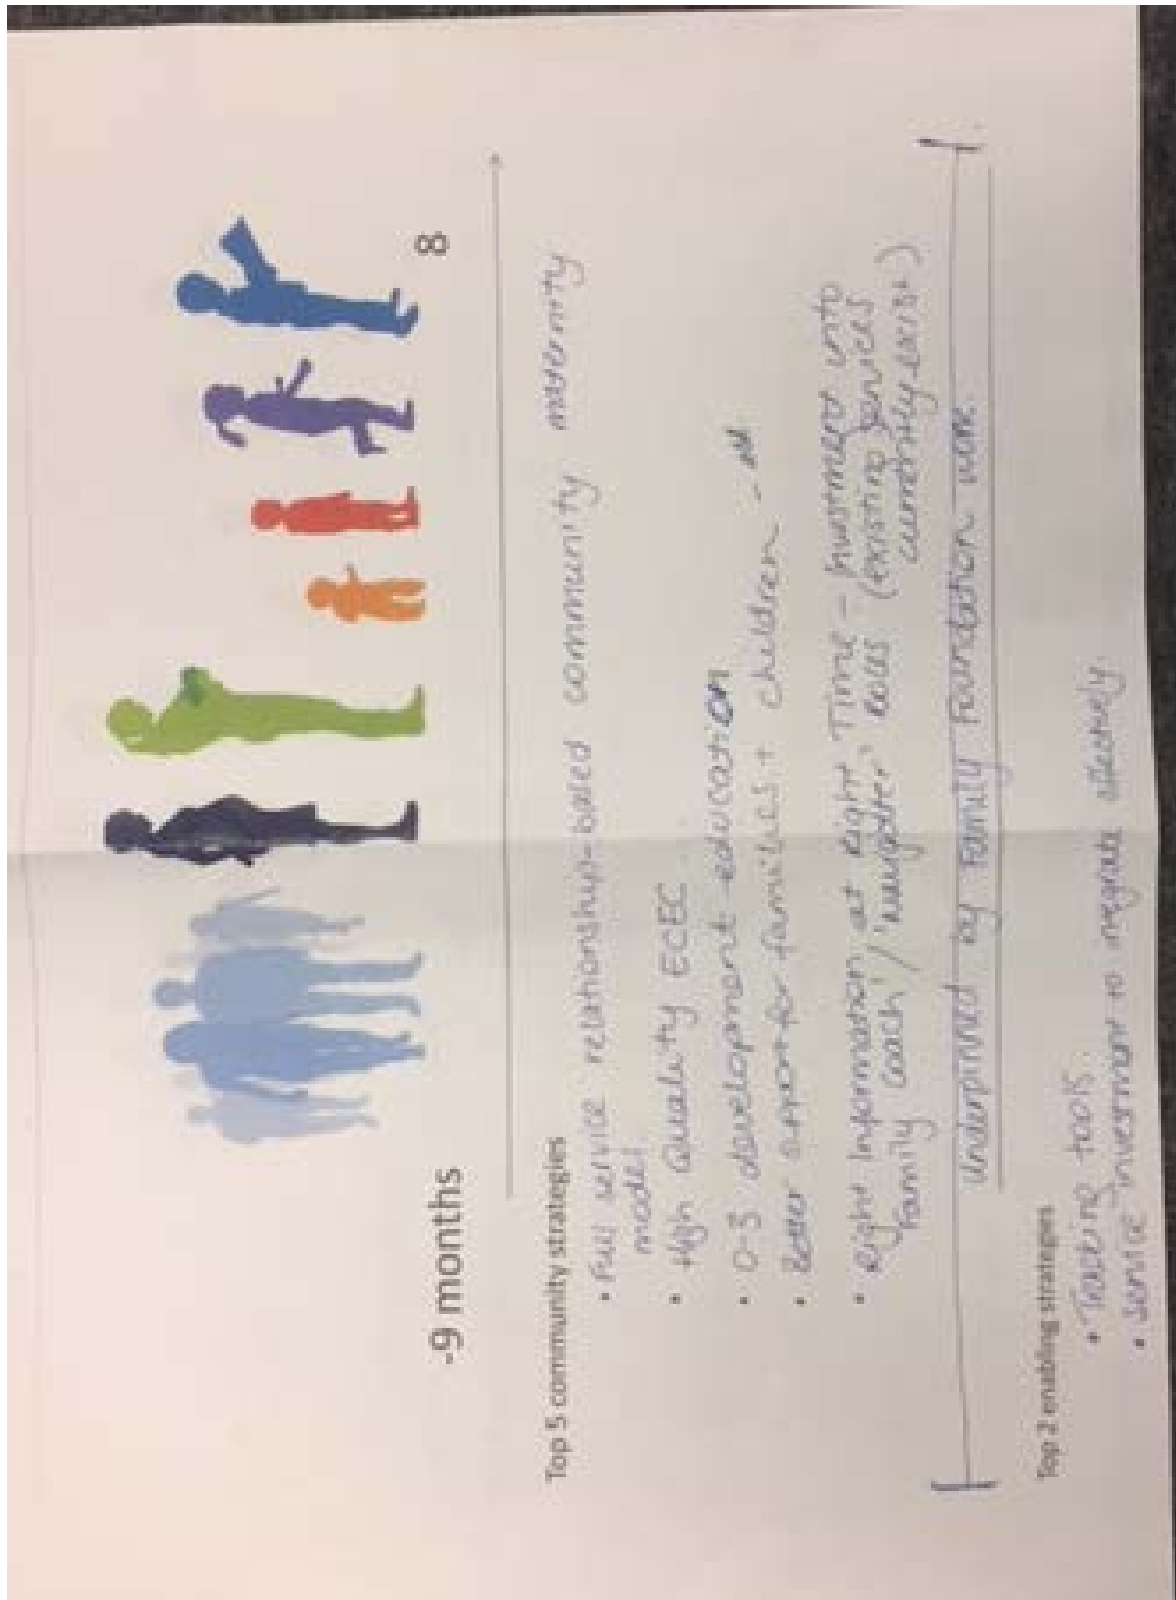 -9 months
8
Top 5 community strategies
• Full service relationship-based community maternity
model
• High Quality ECEC
• 0-3 development education
• Better support for families + children -
• Right Information at Right Time - Investment into
Family 'coach' / 'navigator' roles (existing services
currently exist)
Underpinned by Family Foundation work.
Top 2 enabling strategies
• Tracking tools.
• Service investment to integrate effectively.